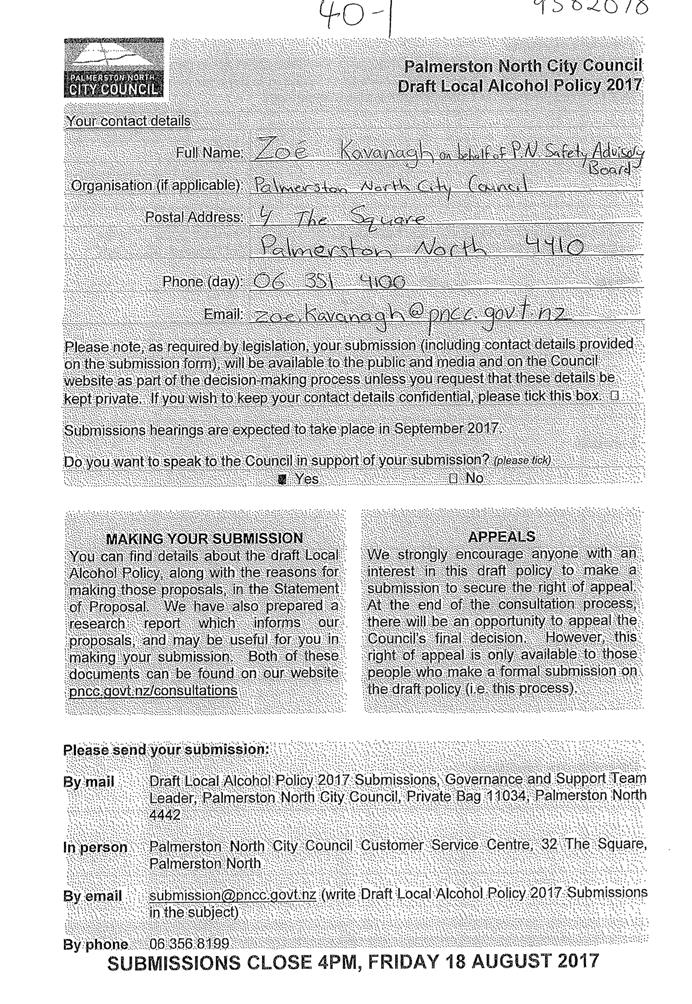 40-1
9582078
PALMERSTON NORTH
CITY COUNCIL
Palmerston North City Council
Draft Local Alcohol Policy 2017
Your contact details
Full Name: Zoë Kavanagh on behalf of P.N. Safety Advisory
Board
Organisation (if applicable): Palmerston North City Council
Postal Address: 4 The Square
Palmerston North 4410
Phone (day): 06 351 4100
Email: zoe.kavanagh@pncc.govt.nz
Please note, as required by legislation, your submission (including contact details provided
on the submission form), will be available to the public and media and on the Council
website as part of the decision-making process unless you request that these details be
kept private. If you wish to keep your contact details confidential, please tick this box. ☐
Submissions hearings are expected to take place in September 2017.
Do you want to speak to the Council in support of your submission? (please tick)
■ Yes ☐ No
MAKING YOUR SUBMISSION
You can find details about the draft Local
Alcohol Policy, along with the reasons for
making those proposals, in the Statement
of Proposal. We have also prepared a
research report which informs our
proposals, and may be useful for you in
making your submission. Both of these
documents can be found on our website
pncc.govt.nz/consultations
APPEALS
We strongly encourage anyone with an
interest in this draft policy to make a
submission to secure the right of appeal.
At the end of the consultation process,
there will be an opportunity to appeal the
Council's final decision. However, this
right of appeal is only available to those
people who make a formal submission on
the draft policy (i.e. this process).
Please send your submission:
By mail Draft Local Alcohol Policy 2017 Submissions, Governance and Support Team
Leader, Palmerston North City Council, Private Bag 11034, Palmerston North
4442
In person Palmerston North City Council Customer Service Centre, 32 The Square,
Palmerston North
By email submission@pncc.govt.nz (write Draft Local Alcohol Policy 2017 Submissions
in the subject)
By phone 06 356 8199
SUBMISSIONS CLOSE 4PM, FRIDAY 18 AUGUST 2017